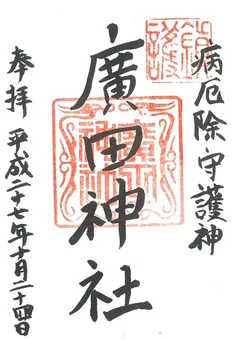 病厄除守護神
廣田神社
奉拝 平成二十七年十月二十四日